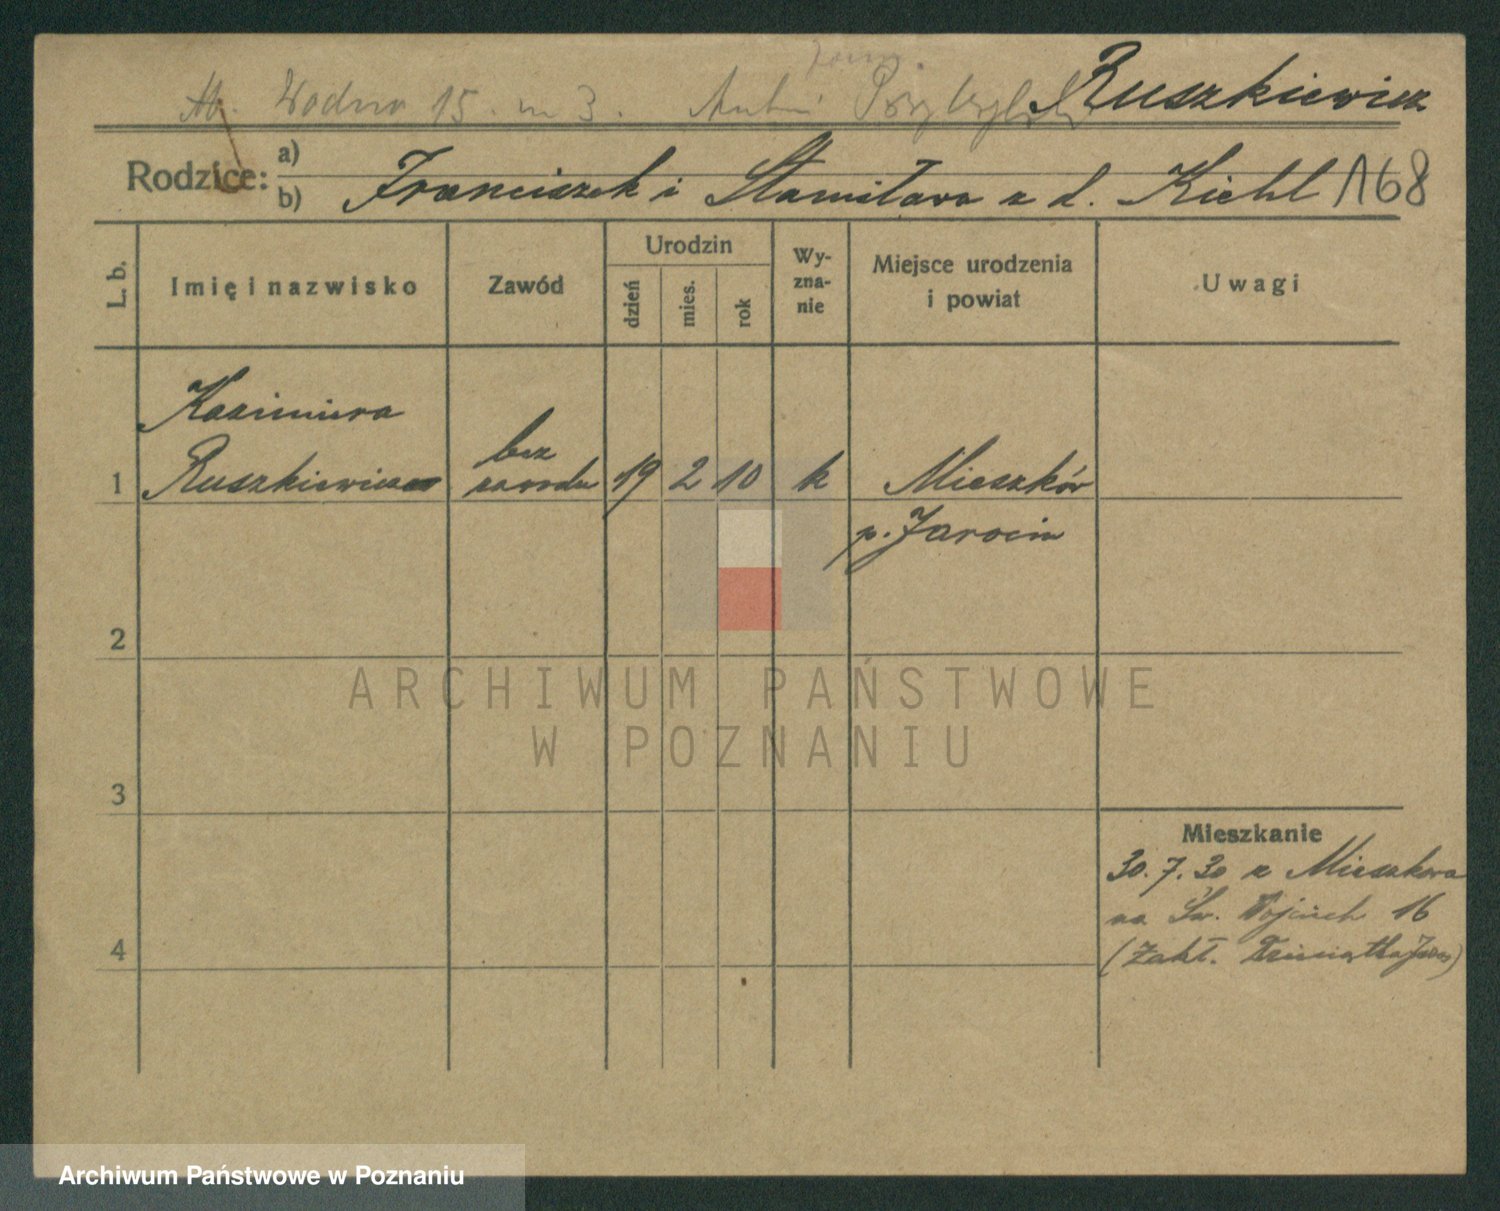 Wodna 15. m 3. Ruszkiewicz
Rodzice: a)
b) Franciszek i Stanisława z d. Kiehl 168
L. b. Imię i nazwisko Zawód Urodzin dzień mies. rok Wy-zna-nie Miejsce urodzenia i powiat Uwagi
Kazimiera
bez
1 Ruszkiewicz zawodu 19 2 10 k Mieszków
p. Jarocin
2
ARCHIWUM PAŃSTWOWE
W POZNANIU
3
Mieszkanie
30.7.30 z Mieszkowa
na Św. Wojciech 16
4 (Zakł.
Archiwum Państwowe w Poznaniu